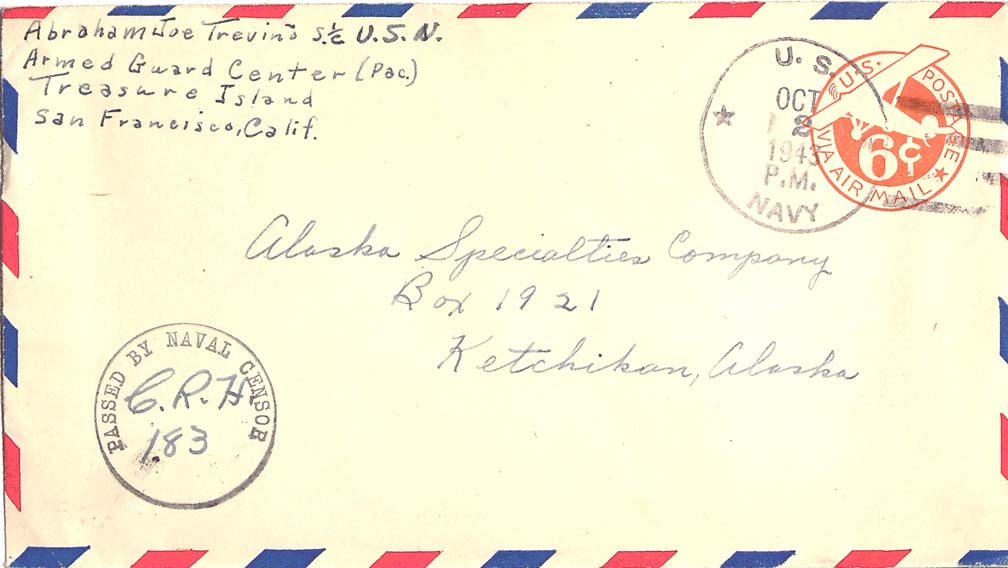 Abraham Joe Treviño S.1/c U.S.N.
Armed Guard Center (Pac.)
Treasure Island
San Francisco, Calif.
U. S.
OCT
2
1943
P.M.
NAVY
U.S. POSTAGE
6¢
VIA AIR MAIL
Alaska Specialties Company
Box 1921
Ketchikan, Alaska
PASSED BY NAVAL CENSOR
C.R.H.
183